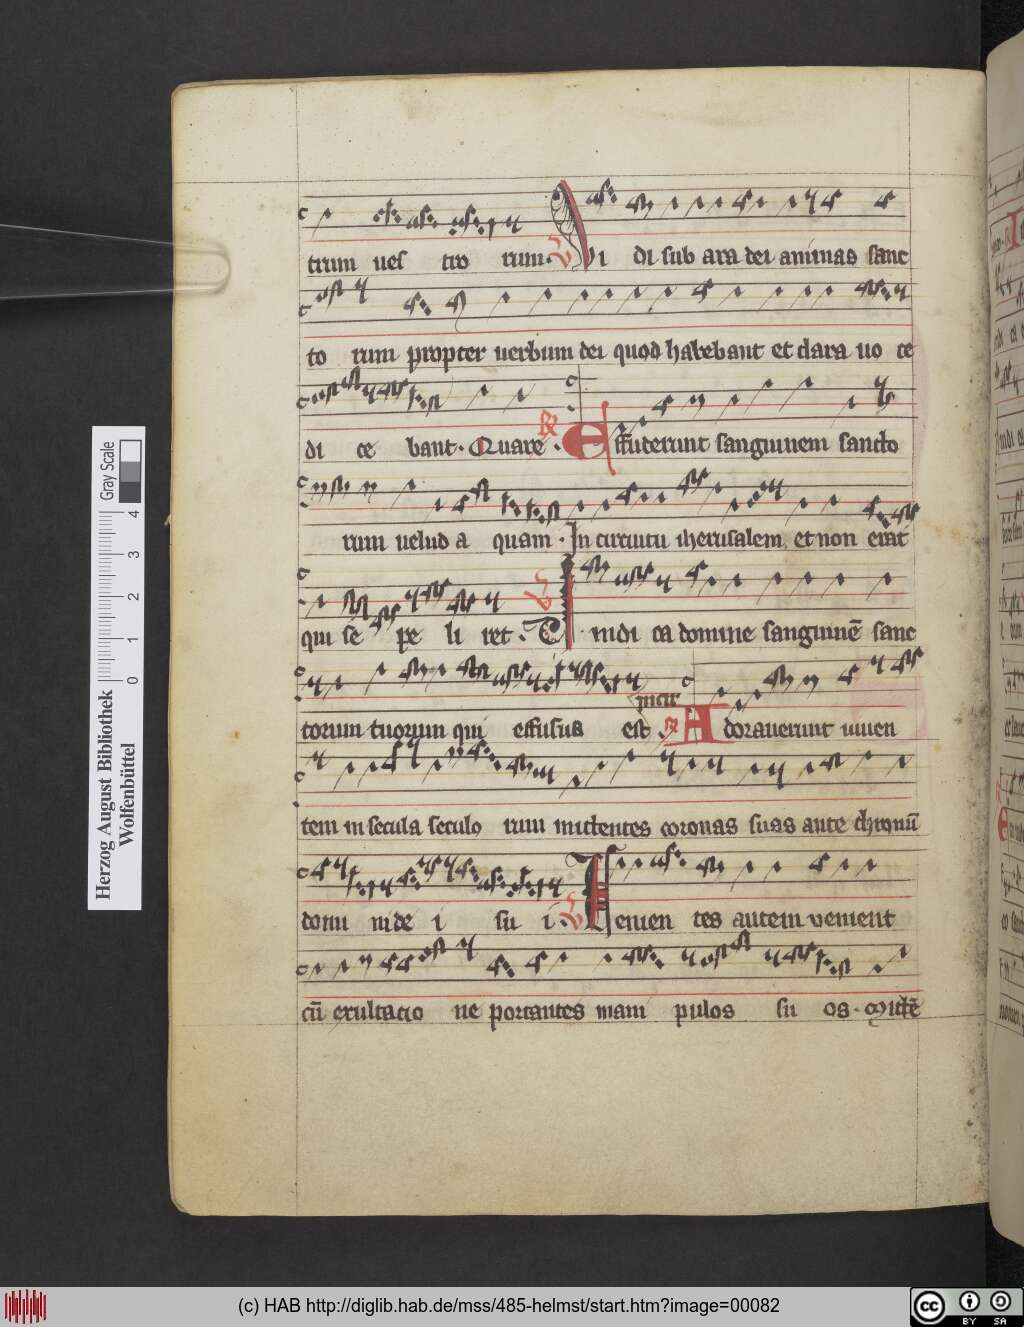 trum ues tro rum. V Vi di sub ara dei animas sanc
to rum propter uerbum dei quod habebant et clara uo ce
di ce bant. Quare. R Effuderunt sanguinem sancto
rum uelud a quam. In circuitu iherusalem, et non erat
qui se pe li ret. V Vindi ca domine sanguinē sanc
torum tuorum qui effusus est. R Adorauerunt uiuen
tem in secula seculo rum mittentes coronas suas ante thronū
domi ni de i su i. V Venien tes autem venient
cū exultatio ne portantes mani pulos su os. Mittē
Herzog August Bibliothek
Wolfenbüttel
Gray Scale
0 1 2 3 4
(c) HAB http://diglib.hab.de/mss/485-helmst/start.htm?image=00082
cc BY SA